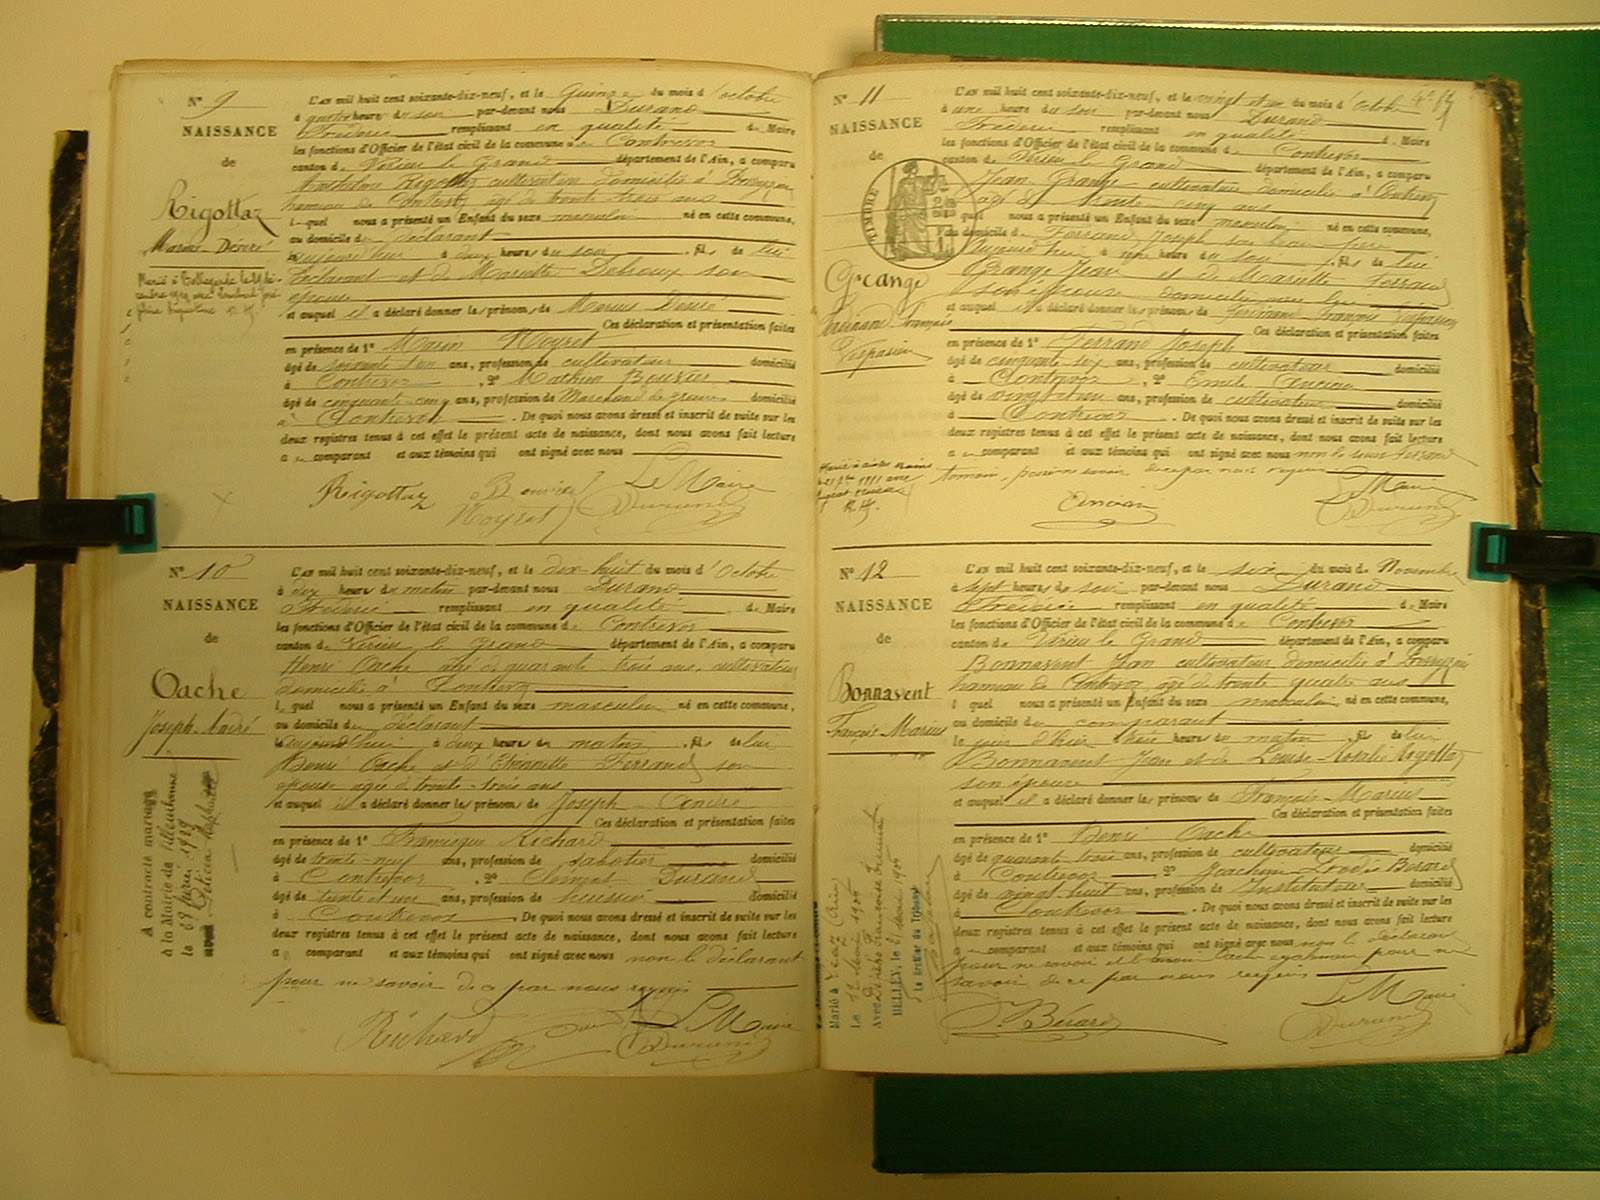 N° 9
NAISSANCE
de
Rigottaz
Marius Désiré
L'an mil huit cent soixante-dix-neuf, et le Quinze du mois d'octobre
à quatre heure du soir par-devant nous Durand
Frédéric remplissant en qualité de Maire
les fonctions d'Officier de l'état civil de la commune de Contrevoz
canton de Virieu le Grand département de l'Ain, a comparu
Anthelme Rigottaz cultivateur domicilié à
hameau de Contrevoz âgé de trente trois ans
lequel nous a présenté un Enfant du sexe masculin né en cette commune,
au domicile du déclarant
aujourd'hui à deux heures du soir fils de lui
déclarant et de Mariette Debroux son
épouse
et auquel il a déclaré donner les prénoms de Marius Désiré
Ces déclaration et présentation faites
en présence de 1° Marin Moyret
âgé de soixante un ans, profession de cultivateur domicilié
à Contrevoz, 2° Mathieu Bouvier
âgé de cinquante-cinq ans, profession de Marchand de grains domicilié
à Contrevoz. De quoi nous avons dressé et inscrit de suite sur les
deux registres tenus à cet effet le présent acte de naissance, dont nous avons fait lecture
au comparant et aux témoins qui ont signé avec nous
Rigottaz Bouvier Le Maire
Moyret Durand
N° 10
NAISSANCE
de
Cache
Joseph-André
A contracté mariage
à la Mairie de Villeurbanne
le 8 février 1919
avec
L'an mil huit cent soixante-dix-neuf, et le dix-huit du mois d'Octobre
à dix heures du matin par-devant nous Durand
Frédéric remplissant en qualité de Maire
les fonctions d'Officier de l'état civil de la commune de Contrevoz
canton de Virieu le Grand département de l'Ain, a comparu
Henri Cache âgé de quarante trois ans, cultivateur
domicilié à Contrevoz
lequel nous a présenté un Enfant du sexe masculin né en cette commune,
au domicile du déclarant
le aujourd'hui à deux heures du matin fils de lui
Henri Cache et d'Ferrand son
épouse âgée de trente-trois ans
et auquel il a déclaré donner les prénoms de Joseph-André
Ces déclaration et présentation faites
en présence de 1° Dominique Richard
âgé de trente-neuf ans, profession de sabotier domicilié
à Contrevoz, 2° Clément Durand
âgé de trente et un ans, profession de huissier domicilié
à Contrevoz. De quoi nous avons dressé et inscrit de suite sur les
deux registres tenus à cet effet le présent acte de naissance, dont nous avons fait lecture
au comparant et aux témoins qui ont signé avec nous non le déclarant
pour ne savoir de ce par nous requis
Richard Le Maire
Durand
N° 11
NAISSANCE
de
TIMBRE
Grange
Ferdinand François
Vespasien
L'an mil huit cent soixante-dix-neuf, et le vingt et un du mois d'Octobre
à une heure du soir par-devant nous Durand
Frédéric remplissant en qualité de Maire
les fonctions d'Officier de l'état civil de la commune de Contrevoz
canton de Virieu le Grand département de l'Ain, a comparu
Jean Grange cultivateur domicilié à Contrevoz
âgé de trente cinq ans
lequel nous a présenté un Enfant du sexe masculin né en cette commune,
au domicile de Ferrand Joseph son beau père
Aujourd'hui à heure du soir fils de lui
Grange Jean et de Mariette Ferrand
son épouse domiciliée avec lui
et auquel il a déclaré donner les prénoms de Ferdinand François Vespasien
Ces déclaration et présentation faites
en présence de 1° Ferrand Joseph
âgé de cinquante six ans, profession de cultivateur domicilié
à Contrevoz, 2° Emile Ancian
âgé de vingt un ans, profession de cultivateur domicilié
à Contrevoz. De quoi nous avons dressé et inscrit de suite sur les
deux registres tenus à cet effet le présent acte de naissance, dont nous avons fait lecture
au comparant et aux témoins qui ont signé avec nous non le sieur Ferrand
témoin, pour ne savoir de ce par nous requis
Ancian Le Maire
Durand
N° 12
NAISSANCE
de
Bonnavent
François-Marius
BELLEY, le
Le Greffier du Tribunal
L'an mil huit cent soixante-dix-neuf, et le six du mois de Novembre
à sept heures du soir par-devant nous Durand
Frédéric remplissant en qualité de Maire
les fonctions d'Officier de l'état civil de la commune de Contrevoz
canton de Virieu le Grand département de l'Ain, a comparu
Bonnavent Jean cultivateur domicilié à
hameau de Contrevoz âgé de trente quatre ans
lequel nous a présenté un Enfant du sexe masculin né en cette commune,
au domicile du comparant
le jour d'hier à heures du matin fils de lui
Bonnavent Jean et de Louise-Rosalie Rigottaz
son épouse
et auquel il a déclaré donner les prénoms de François-Marius
Ces déclaration et présentation faites
en présence de 1° Henri Cache
âgé de quarante trois ans, profession de cultivateur domicilié
à Contrevoz, 2° Joachim Bérard
âgé de vingt huit ans, profession de Instituteur domicilié
à Contrevoz. De quoi nous avons dressé et inscrit de suite sur les
deux registres tenus à cet effet le présent acte de naissance, dont nous avons fait lecture
au comparant et aux témoins qui ont signé avec nous non le déclarant
pour ne savoir et le témoin Cache également pour ne
savoir de ce par nous requis
J. Bérard Le Maire
Durand